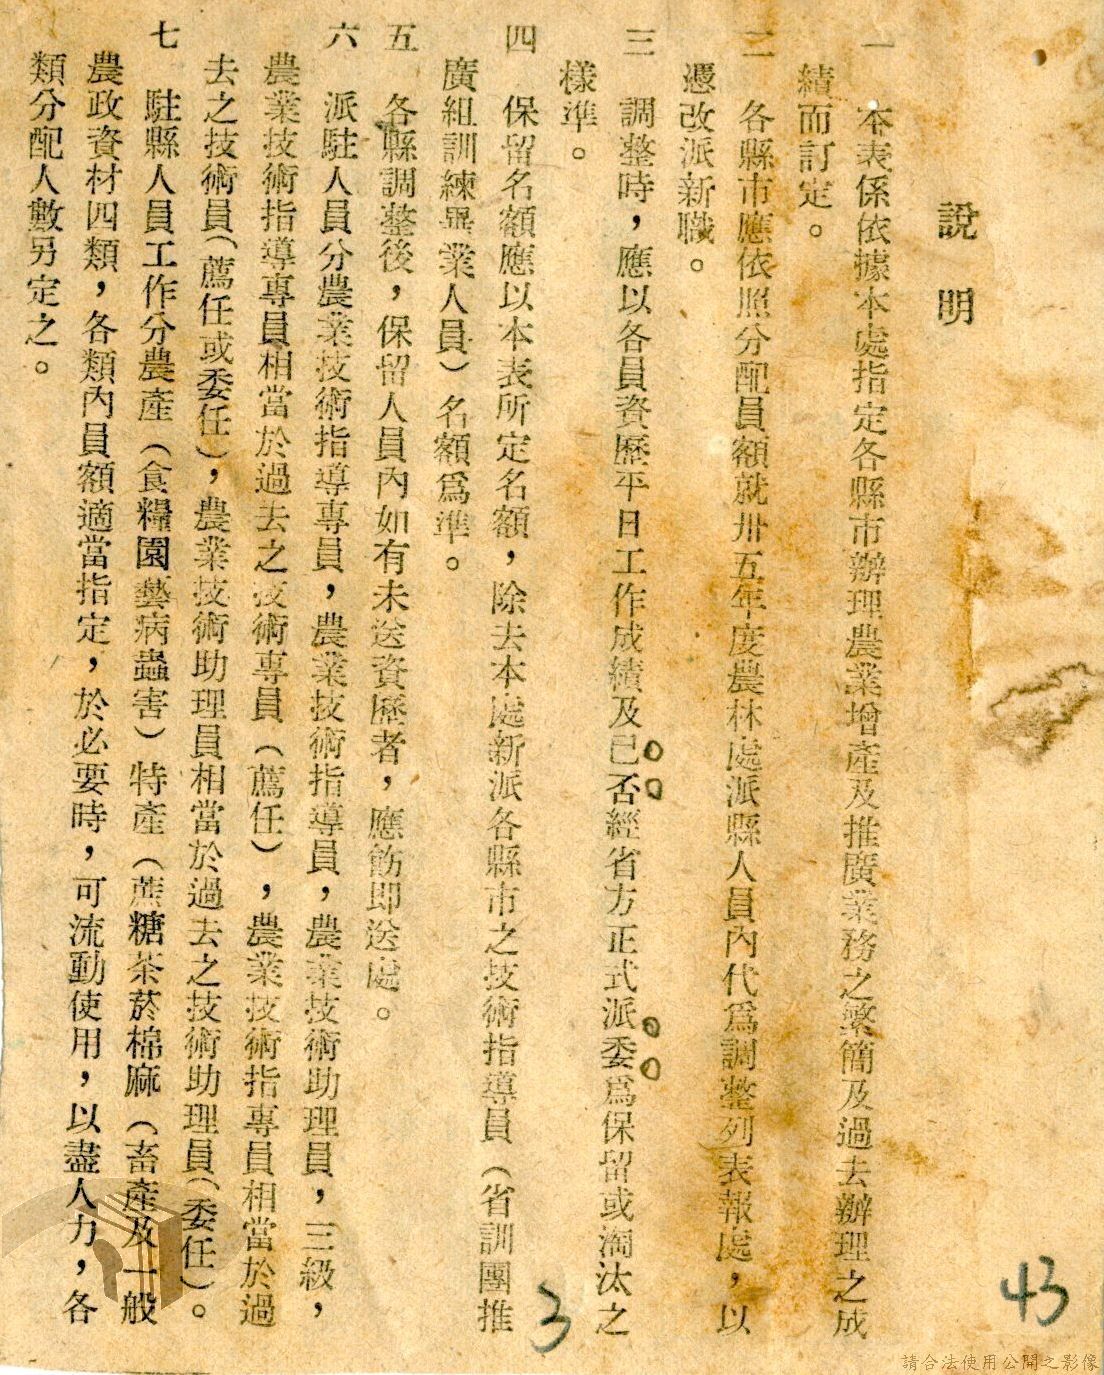 說明
一　本表係依據本處指定各縣市辦理農業增產及推廣業務之繁簡及過去辦理之成
績而訂定。
二　各縣市應依照分配員額就卅五年度農林處派縣人員內代爲調整列表報處，以
憑改派新職。
三　調整時，應以各員資歷平日工作成績及已否經省方正式派委爲保留或淘汰之
樣準。
四　保留名額應以本表所定名額，除去本處新派各縣市之技術指導員（省訓團推
廣組訓練畢業人員）名額爲準。
五　各縣調整後，保留人員內如有未送資歷者，應飭即送處。
六　派駐人員分農業技術指導專員，農業技術指導員，農業技術助理員，三級，
農業技術指導專員相當於過去之技術專員（薦任），農業技術指專員相當於過
去之技術員（薦任或委任），農業技術助理員相當於過去之技術助理員（委任）。
七　駐縣人員工作分農產（食糧園藝病蟲害）特產（蔗糖茶菸棉麻（畜產及一般
農政資材四類，各類內員額適當指定，於必要時，可流動使用，以盡人力，各
類分配人數另定之。
3
43
請合法使用公開之影像